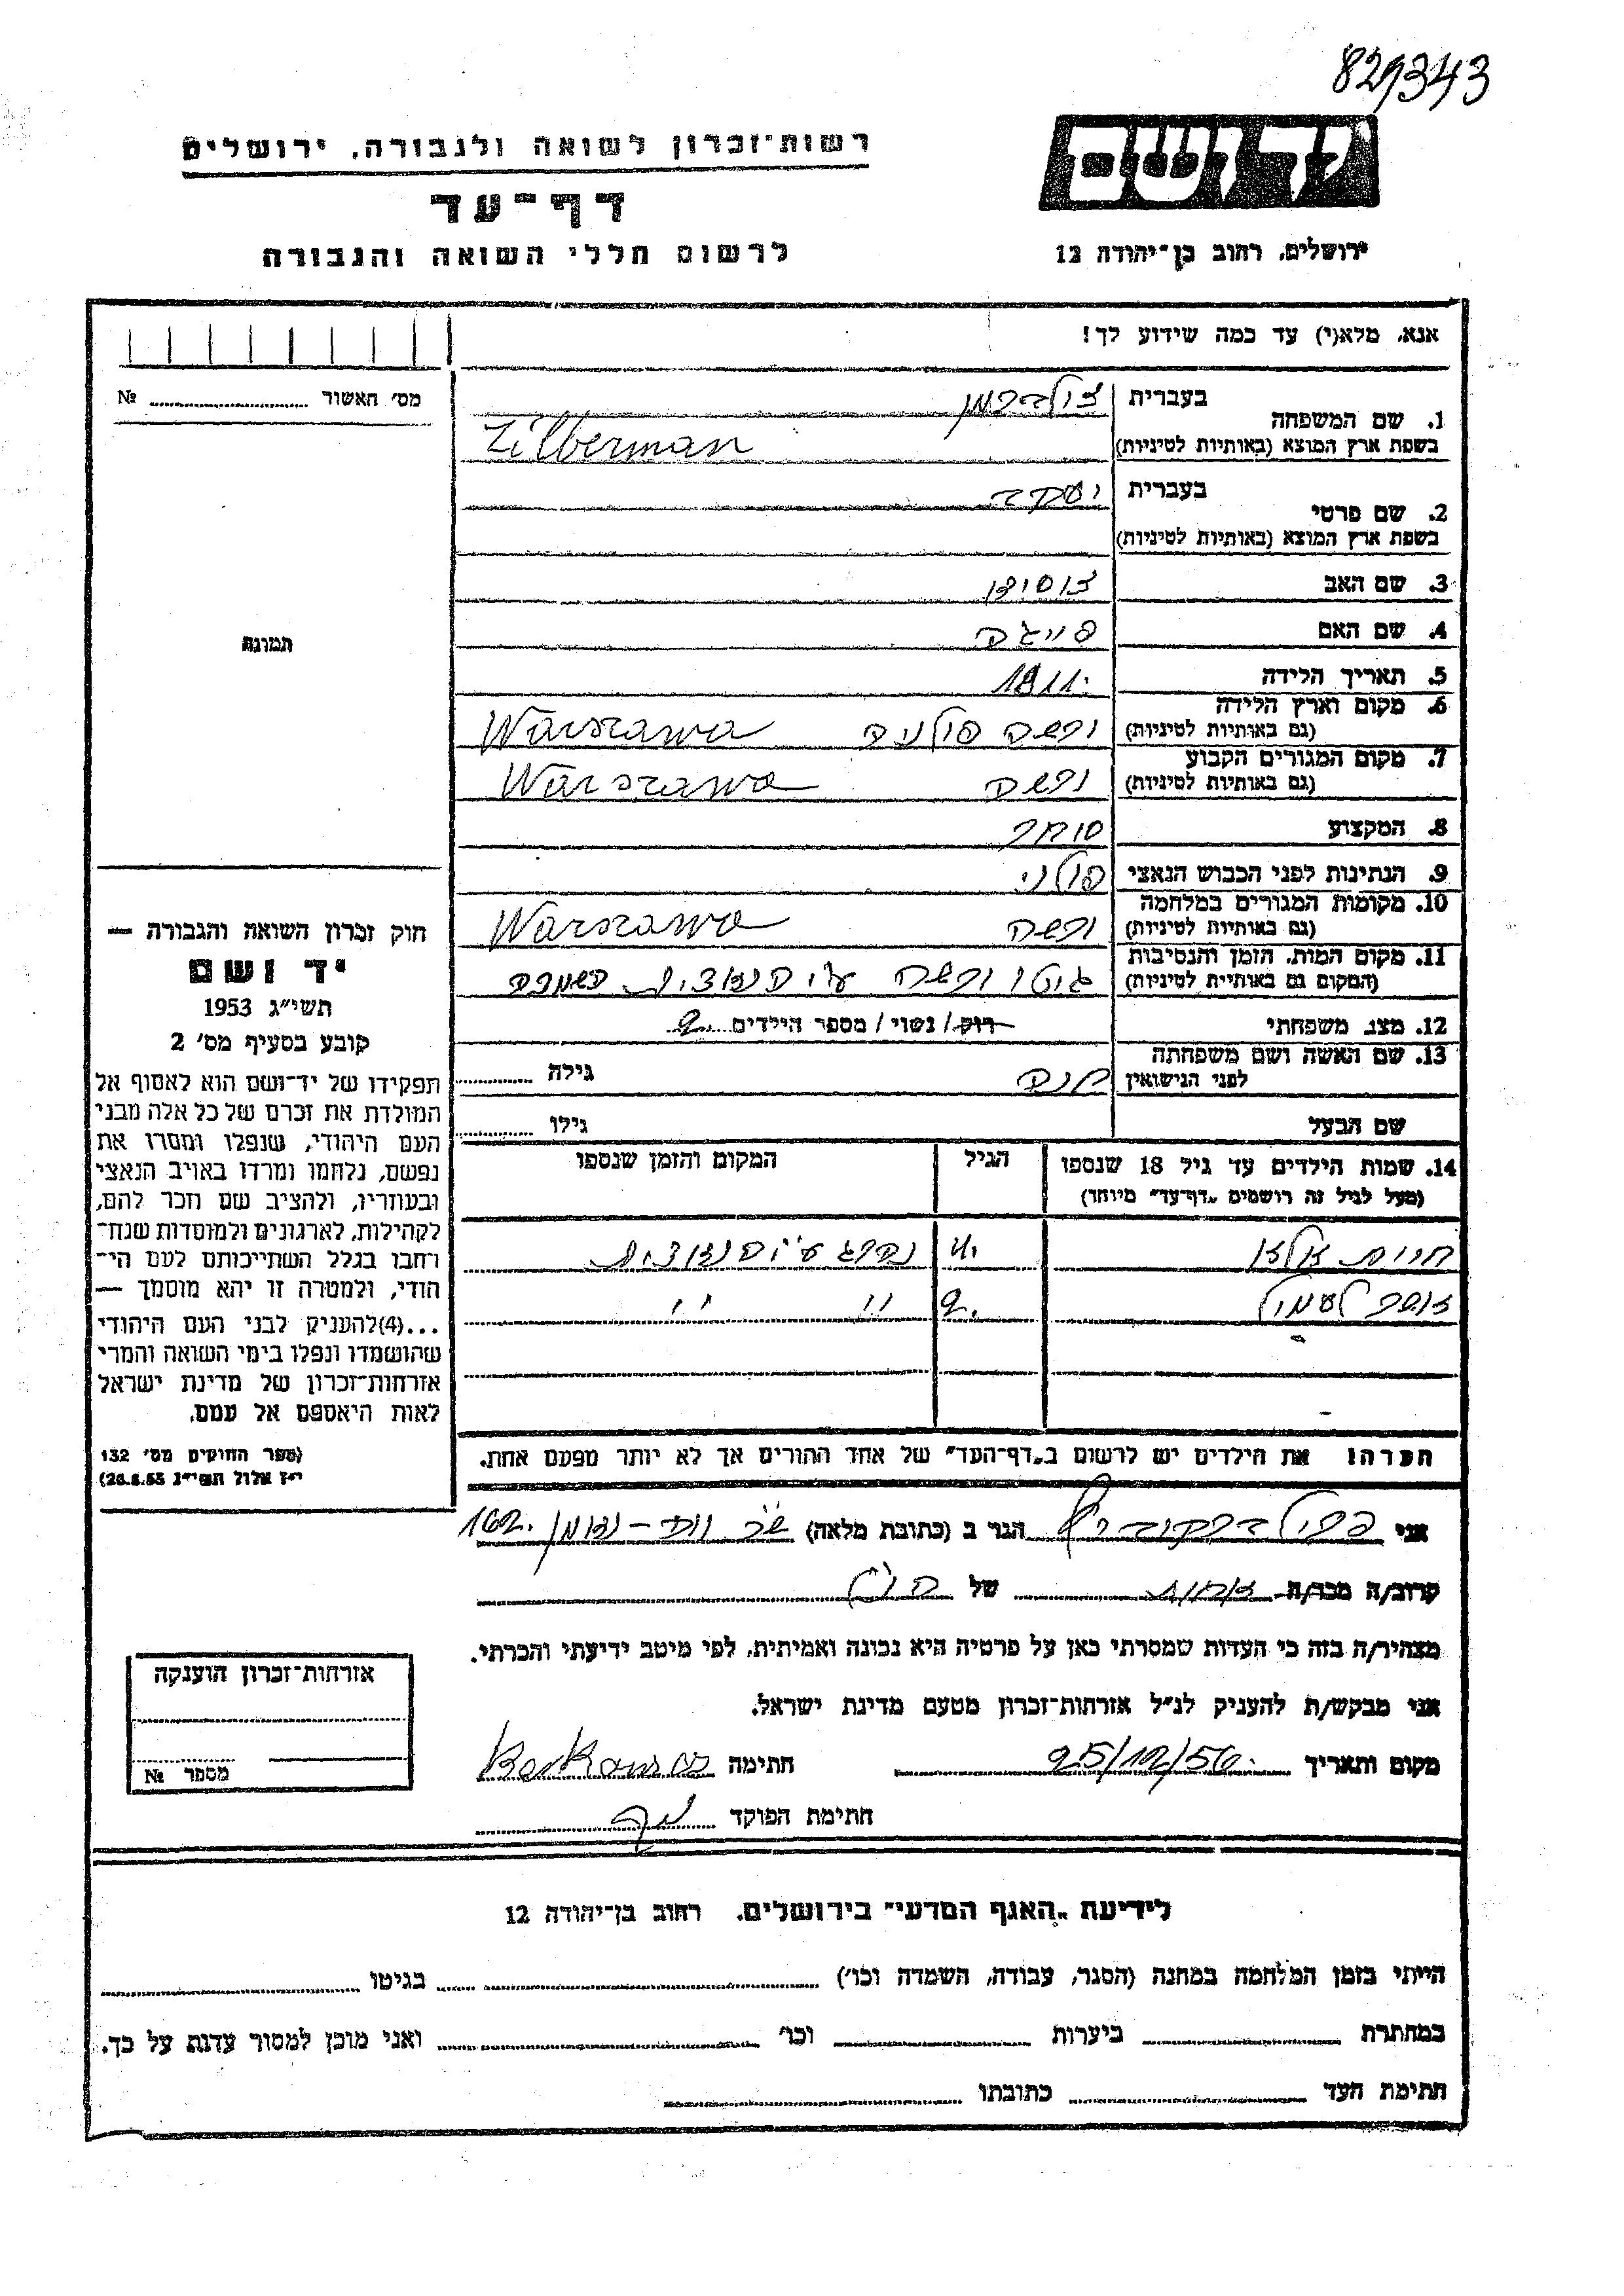 829343
רשות־זכרון לשואה ולגבורה, ירושלים
יד ושם
דף־עד
לרשום חללי השואה והגבורה
ירושלים, רחוב בן־יהודה 12
אנא, מלא(י) עד כמה שידוע לך!
מס׳ האשור № 
1. שם המשפחה
בעברית זילברמן
בשפת ארץ המוצא (באותיות לטיניות) Zilberman
2. שם פרטי
בעברית יעקב
בשפת ארץ המוצא (באותיות לטיניות)
3. שם האב
4. שם האם פייגה
5. תאריך הלידה 1911.
6. מקום וארץ הלידה
(גם באותיות לטיניות) ורשה פולניה Warszawa
7. מקום המגורים הקבוע
(גם באותיות לטיניות) ורשה Warszawa
8. המקצוע סוחר
9. הנתינות לפני הכבוש הנאצי פולני
10. מקומות המגורים במלחמה
(גם באותיות לטיניות) ורשה Warszawa
11. מקום המות, הזמן והנסיבות
(המקום גם באותיית לטיניות) גיטו ורשה ע״י הנאצים בשמדה
12. מצב משפחתי רווק/ נשוי/ מספר הילדים 2.
13. שם האשה ושם משפחתה
לפני הנישואין חנה גילה
שם הבעל גילו
14. שמות הילדים עד גיל 18 שנספו
(מעל לגיל זה רושמים „דף־עד״ מיוחד)
הגיל
המקום והזמן שנספו
נהרג ע״י הנאצים
2. " "
הערה! את הילדים יש לרשום ב„דף־העד״ של אחד ההורים אך לא יותר מפעם אחת.
תמונה
חוק זכרון השואה והגבורה —
יד ושם
תשי״ג 1953
קובע בסעיף מס׳ 2
תפקידו של יד־ושם הוא לאסוף אל
המולדת את זכרם של כל אלה מבני
העם היהודי, שנפלו ומסרו את
נפשם, נלחמו ומרדו באויב הנאצי
ובעוזריו, ולהציב שם וזכר להם,
לקהילות, לארגונים ולמוסדות שנח־
רחבו בגלל השתייכותם לעם הי־
הודי, ולמטרה זו יהא מוסמך —
...(4)להעניק לבני העם היהודי
שהושמדו ונפלו בימי השואה והמרי
אזרחות־זכרון של מדינת ישראל
לאות היאספם אל עמם.
(ספר החוקים מס׳ 132
י״ז אלול תשי״ג 28.8.53)
אני ברקוביץ הגר ב (כתובת מלאה) 162.
קרוב/ה מכר/ה של
מצהיר/ה בזה כי העדות שמסרתי כאן על פרטיה היא נכונה ואמיתית, לפי מיטב ידיעתי והכרתי.
אני מבקש/ת להעניק לנ״ל אזרחות־זכרון מטעם מדינת ישראל.
מקום ותאריך 25/12/56. חתימה
חתימת הפוקד
אזרחות־זכרון הוענקה
מספר №
לידיעת „האגף המדעי״ בירושלים, רחוב בן־יהודה 12
הייתי בזמן המלחמה במחנה (הסגר, עבודה, השמדה וכו׳) בגיטו
במחתרת ביערות וכו׳ ואני מוכן למסור עדות על כך.
חתימת העד כתובתו